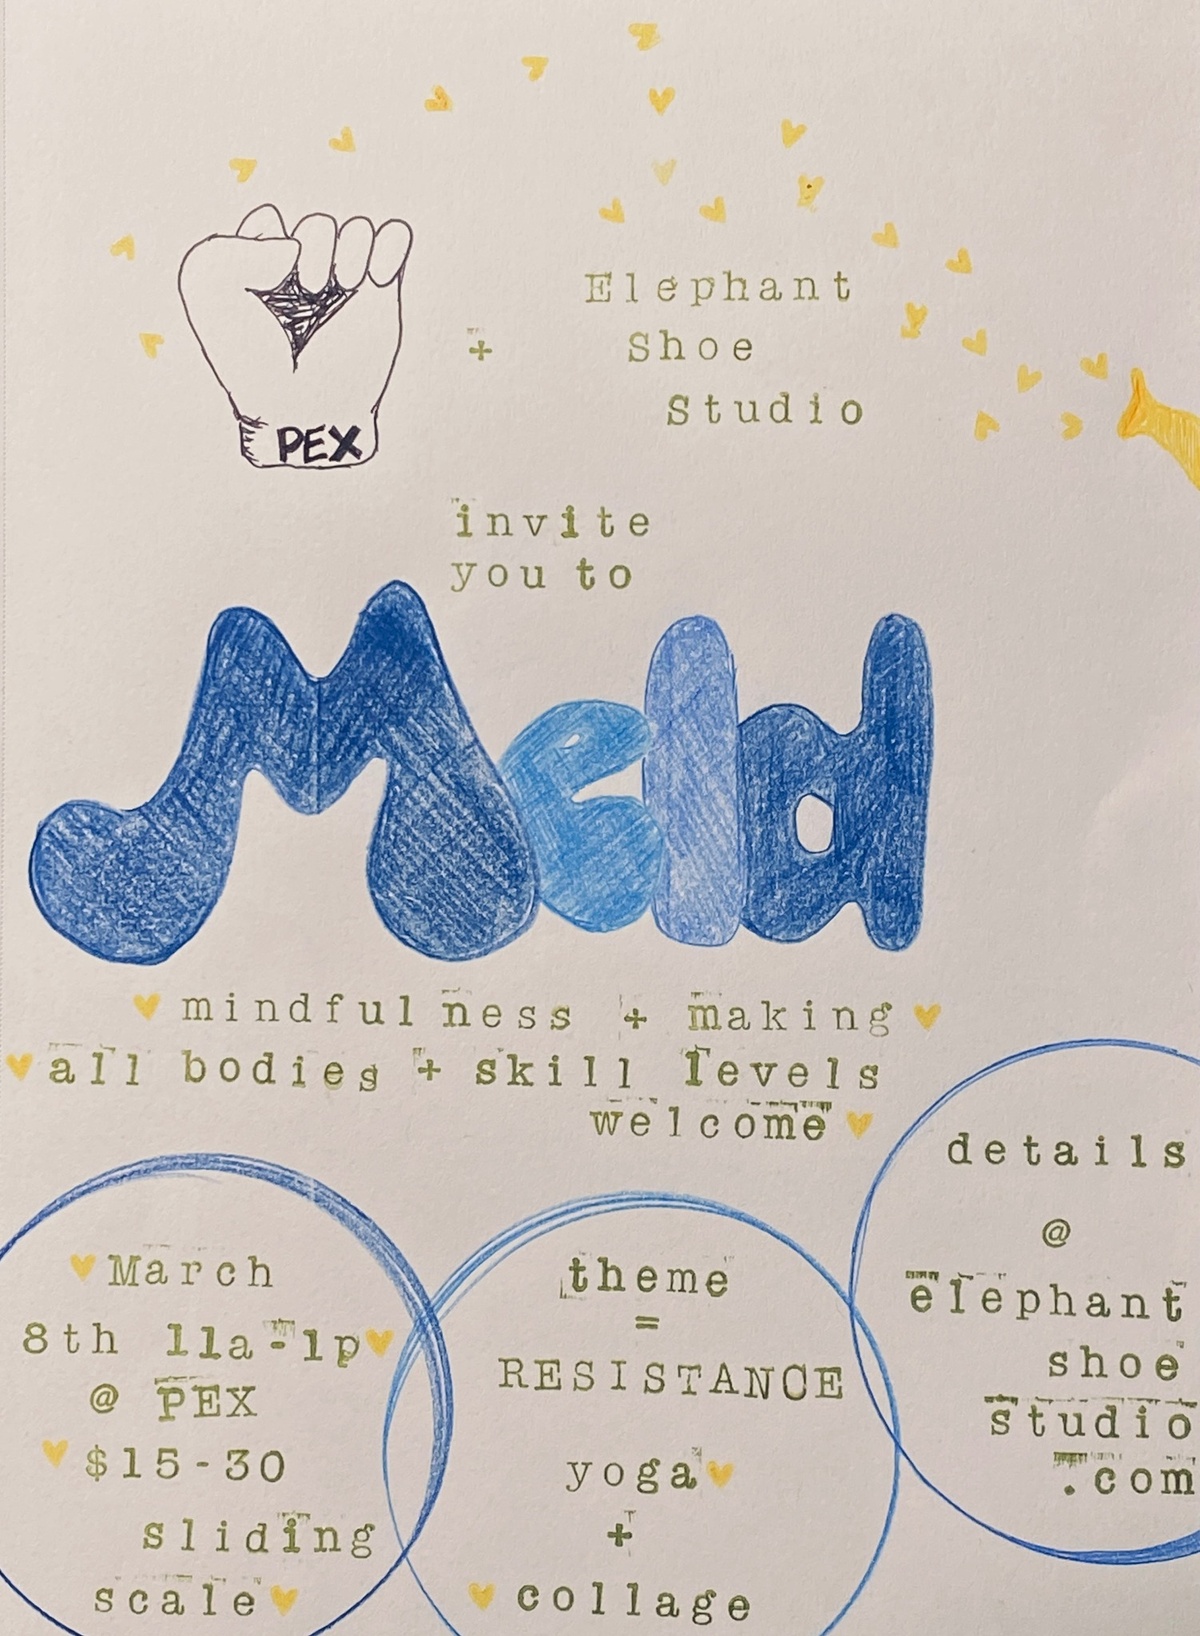 PEX
+
Elephant
Shoe
Studio
invite
you to
Meld
mindfulness + making
all bodies + skill levels
welcome
March
8th 11a-1p
@ PEX
$15-30
sliding
scale
theme
=
RESISTANCE
yoga
+
collage
details
@
elephant
shoe
studio
.com